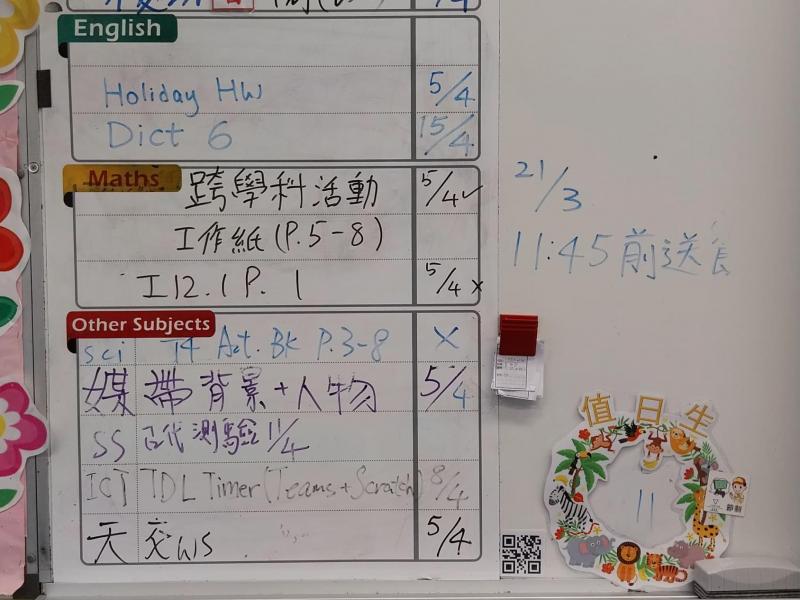 English
Holiday HW 5/4
Dict 6 15/4
Maths
跨學科活動 5/4✓
工作紙(P.5-8)
工12.1 P. 1 5/4 x
Other Subjects
sci T4 Act. BK P.3-8 X
媒 帶背景+人物 5/4
SS 古代測驗 11/4
ICT TDL Timer (Teams + Scratch) 8/4
天 交WS 5/4
21/3
11:45前送
值日生
11
節制